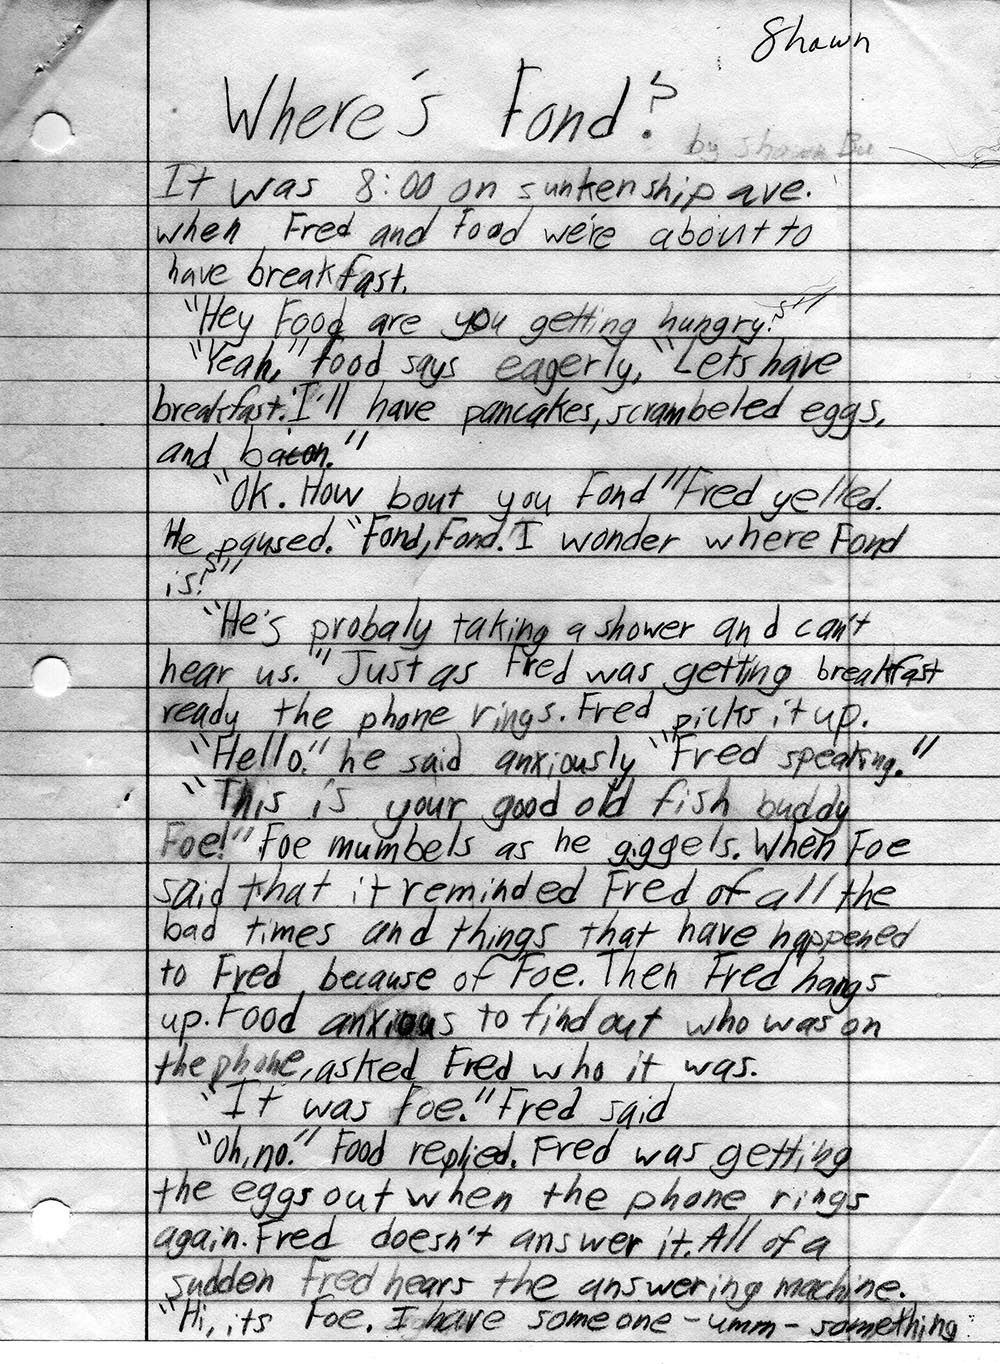 Shawn
Where's Fond?
by Shawn
It was 8:00 on sunkenship ave.
when Fred and Food we're about to
have breakfast.
"Hey Food are you getting hungry?"
"Yeah," Food says eagerly, "Lets have
breakfast. I'll have pancakes, scrambeled eggs,
and bacon."
"OK. How bout you Fond" Fred yelled.
He paused. "Fond, Fond. I wonder where Fond
is?"
"He's probaly taking a shower and can't
hear us." Just as Fred was getting breakfast
ready the phone rings. Fred picks it up.
"Hello." he said anxiously "Fred speaking."
"This is your good old fish buddy
Foe!" Foe mumbels as he giggels. When Foe
said that it reminded Fred of all the
bad times and things that have happened
to Fred because of Foe. Then Fred hangs
up. Food anxious to find out who was on
the phone, asked Fred who it was.
"It was Foe." Fred said
"Oh, no." Food replied. Fred was getting
the eggs out when the phone rings
again. Fred doesn't answer it. All of a
sudden Fred hears the answering machine.
"Hi, its Foe. I have someone - umm - something